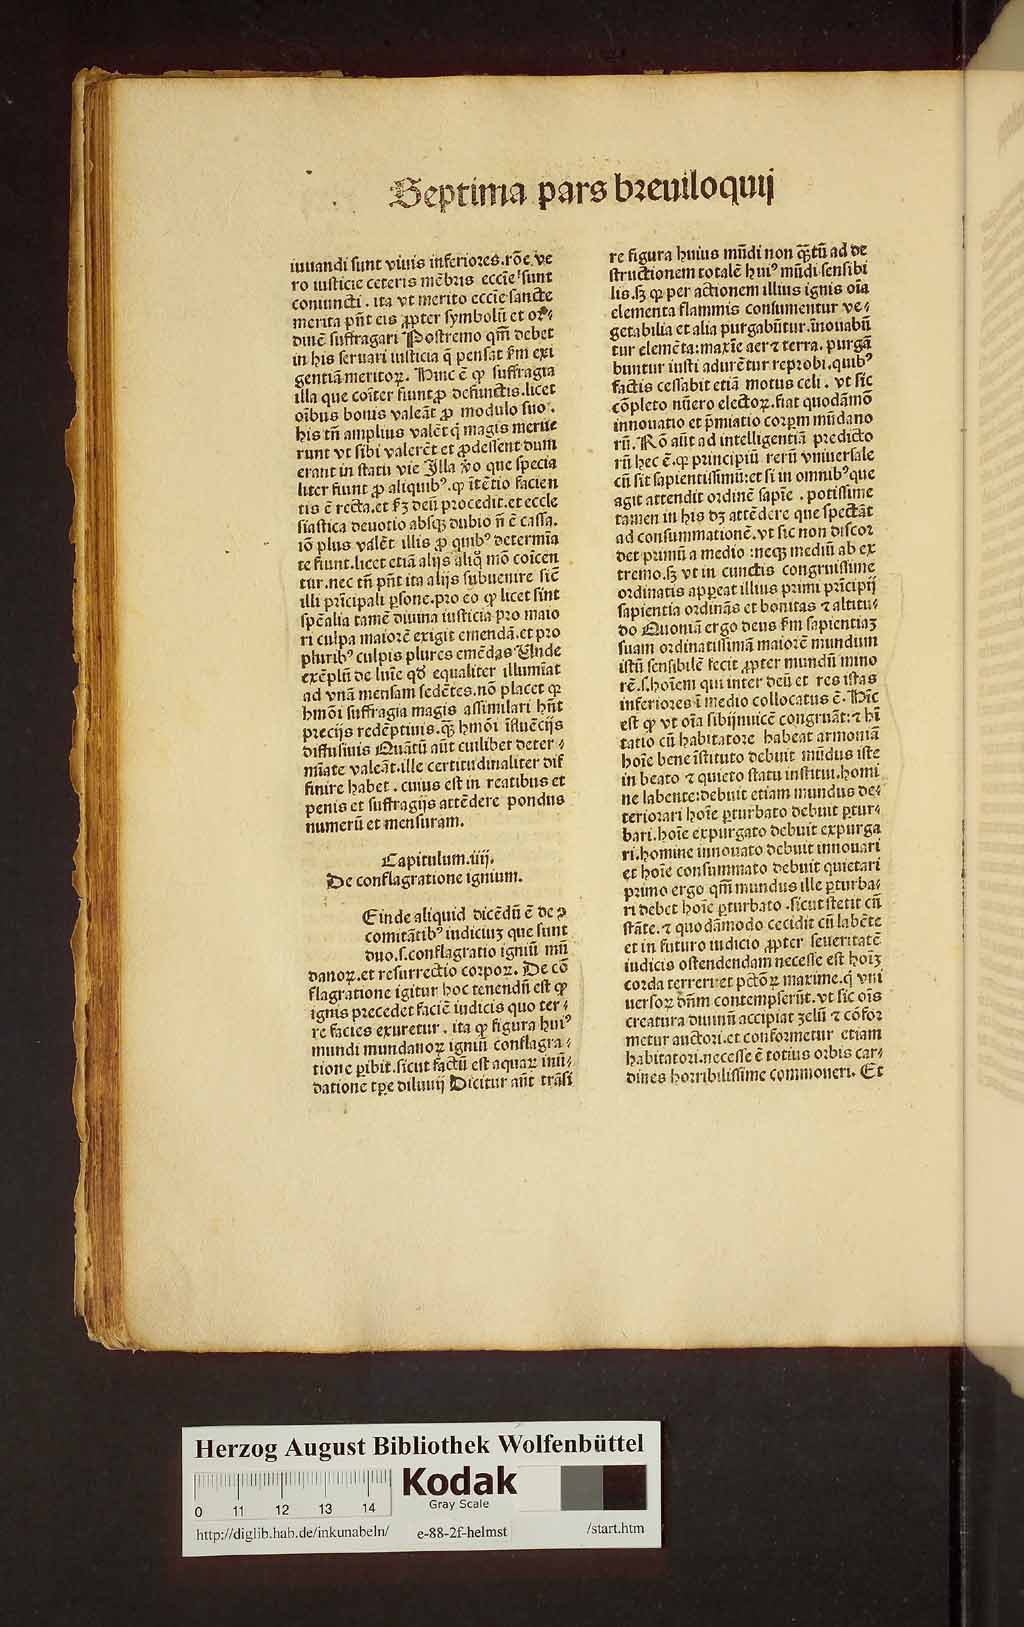 Septima pars breuiloquij
iuuandi sunt viuis inferiores.rõe ve
ro iusticie ceteris mẽbris eccĩe sunt
coniuncti. ita vt merito eccĩe sancte
merita pñt eis ꝓpter symbolũ et or⸗
dinẽ suffragari Postremo qm̃ debet
in his seruari iusticia q̃ pensat ẜm exi
gentiã meritoꝝ. Hinc ẽ ꝙ suffragia
illa que cõiter fiunt ꝓ defunctis.licet
oĩbus bonis valeãt ꝓ modulo suo.
his tñ amplius valẽt q̃ magis merue
runt vt sibi valerẽt et ꝓdessent dum
erant in statu vie Illa ꝟo que specia
liter fiunt ꝓ aliquibꝰ.ꝙ ĩtẽtio facien
tis ẽ recta.et ẜꝫ deũ procedit.et eccle
siastica deuotio absqꝫ dubio nõ ẽ cassa.
iõ plus valẽt illis ꝓ quibꝰ determĩa
te fiunt.licet etiã alijs aliq̊ mõ coĩcen
tur.nec tñ pñt ita alijs subuenire sic̃
illi prĩcipali ꝑsone.pro eo ꝙ licet sint
spẽalia tamẽ diuina iusticia pro maio
ri culpa maiorẽ exigit emendã.et pro
pluribꝰ culpis plures emẽdas Unde
exẽplũ de luĩe qđ equaliter illumĩat
ad vnã mensam sedẽtes.nõ placet qꝛ
hmõi suffragia magis assimilari hñt
precijs redẽptiuis.q̃ꝫ hmõi ĩfluẽcijs
diffusiuis Quãtũ aũt cuilibet deter⸗
mĩate valeãt.ille certitudinaliter dif
finire habet. cuius est in reatibus et
penis et suffragijs attẽdere pondus
numerũ et mensuram.
Capitulum.iiij.
De conflagratione ignium.
Einde aliquid dicẽdũ ẽ de ꝯ
comitãtibꝰ iudiciuꝫ que sunt
duo.s.conflagratio igniũ mũ
danoꝝ.et resurrectio corpoꝝ. De cõ
flagratione igitur hoc tenendũ est ꝙ
ignis precedet faciẽ iudicis quo ter⸗
re facies exuretur. ita ꝙ figura huiꝰ
mundi mundanoꝝ igniũ conflagra⸗
tione ꝑibit.sicut factũ est aquaꝝ inũ⸗
datione tꝑe diluuij Dicitur aũt trãsi
re figura huius mũdi non q̃ꝫtũ ad de
structionem totalẽ huiꝰ mũdi sensibi
lis.sꝫ ꝙ per actionem illius ignis oĩa
elementa flammis consumentur ve⸗
getabilia et alia purgabũtur.ĩnouabũ
tur elemẽta:maxĩe aer ⁊ terra. purgã
buntur iusti adurẽtur reprobi.quibꝰ
factis cessabit etiã motus celi. vt sic
cõpleto nũero electoꝝ.fiat quodãmõ
innouatio et p̃miatio corpꝝm mũdano
rũ. Rõ aũt ad intelligentiã predicto
rũ hec ẽ.qꝛ principiũ rerũ vniuersale
cũ sit sapientissimũ:et si in omnibꝰ que
agit attendit ordinẽ sapĩe. potissime
tamen in his dꝫ attẽdere que spectãt
ad consummationẽ.vt sic non discor
det primũ a medio:neqꝫ mediũ ab ex
tremo.sꝫ vt in cunctis congruissime
ordinatis appeat illius primi prĩcipij
sapientia ordinãs et bonitas ⁊ altitu⸗
do Quoniã ergo deus ẜm sapientiaꝫ
suam ordinatissimã maiorẽ mundum
istũ sensibilẽ fecit ꝓpter mundũ mino
rẽ.s.hoĩem qui inter deũ et res istas
inferiores ĩ medio collocatus ẽ. Hĩc
est ꝙ vt oĩa sibijnuicẽ congruãt:⁊ hĩ
tatio cũ habitatore habeat armoniã
hoĩe bene ĩstituto debuit mũdus iste
in beato ⁊ quieto statu institui.homi
ne labente:debuit etiam mundus de⸗
teriorari hoĩe ꝑturbato debuit ꝑtur⸗
bari.hoĩe expurgato debuit expurga
ri.homine innouato debuit innouari
et hoĩe consummato debuit quietari
primo ergo qm̃ mundus ille ꝑturba⸗
ri debet hoĩe ꝑturbato.sicut stetit cũ
stãte.⁊ quodãmodo cecidit cũ labẽte
et in futuro iudicio ꝓpter seueritatẽ
iudicis ostendendam necesse est hoĩꝫ
corda terreri et pctõꝝ maxime.q̃ vni
uersoꝝ dñm contempserũt.vt sic oĩs
creatura diuinũ accipiat ꝫelũ ⁊ cõfor
metur auctori.et conformetur etiam
habitatori.necesse ẽ totius orbis car⸗
dines horribilissime commoueri. Et
Herzog August Bibliothek Wolfenbüttel
0 11 12 13 14
Kodak
Gray Scale
http://diglib.hab.de/inkunabeln/ e-88-2f-helmst /start.htm